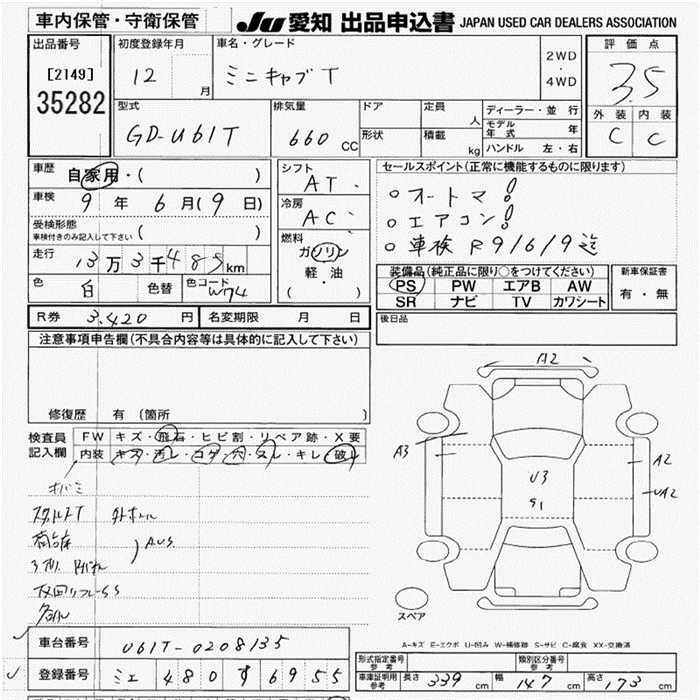 車内保管・守衛保管
JU 愛知 出品申込書 JAPAN USED CAR DEALERS ASSOCIATION
出品番号
[2149]
35282
初度登録年月
12 月
車名・グレード
ミニキャブT
2WD
・
4WD
評価点
3.5
外装 内装
C C
型式
GD-U61T
排気量
660 CC
ドア
形状
定員 人
積載 kg
ディーラー・並行
モデル年式 年
ハンドル 左・右
車歴
自家用・( )
車検
9年 6月(9日)
受検形態
車検付きのみ記入して下さい ( )
走行
13万3千485km
色
白
色替
色コード
W74
シフト
AT
冷房
AC
燃料
ガソリン
軽・油
( )
セールスポイント(正常に機能するものに限ります)
○オートマ!
○エアコン!
○車検 R9/6/9迄
装備品(純正品に限り○をつけてください)
PS PW エアB AW
SR ナビ TV カワシート
新車保証書
有・無
R券 3,420円
名変期限 月 日
後日品
注意事項申告欄(不具合内容等は具体的に記入して下さい)
修復歴 有 (箇所 )
検査員記入欄
FW キズ・飛石・ヒビ割・リペア跡・X要
内装 キズ・汚レ・コゲ・穴・スレ・キレ・破レ
A2
A3
A2
UA2
U3
S1
スペア
A-キズ E-エクボ U-凹み W-補修跡 S-サビ C-腐食 XX-交換済
車台番号
U61T-0208135
登録番号
ミエ 480 す 6955
形式指定番号
参考
類別区分番号
参考
車庫証明用
参考
長さ 339 cm 幅 147 cm 高さ 173 cm